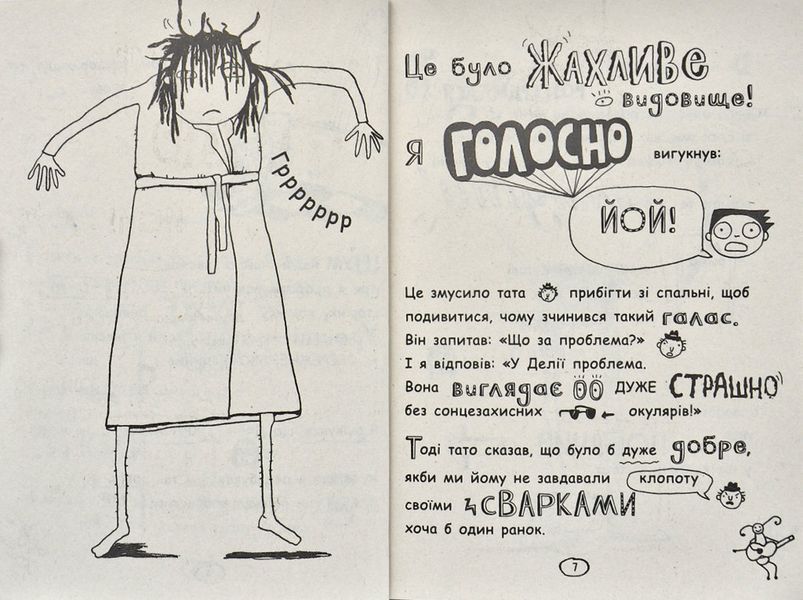 Гррррррр
Це було ЖАХЛИВЕ
видовище!
Я ГОЛОСНО вигукнув:
ЙОЙ!
Це змусило тата прибігти зі спальні, щоб
подивитися, чому зчинився такий галас.
Він запитав: «Що за проблема?»
І я відповів: «У Делії проблема.
Вона виглядає ДУЖЕ СТРАШНО
без сонцезахисних окулярів!»
Тоді тато сказав, що було б дуже добре,
якби ми йому не завдавали клопоту
своїми СВАРКАМИ
хоча б один ранок.
7